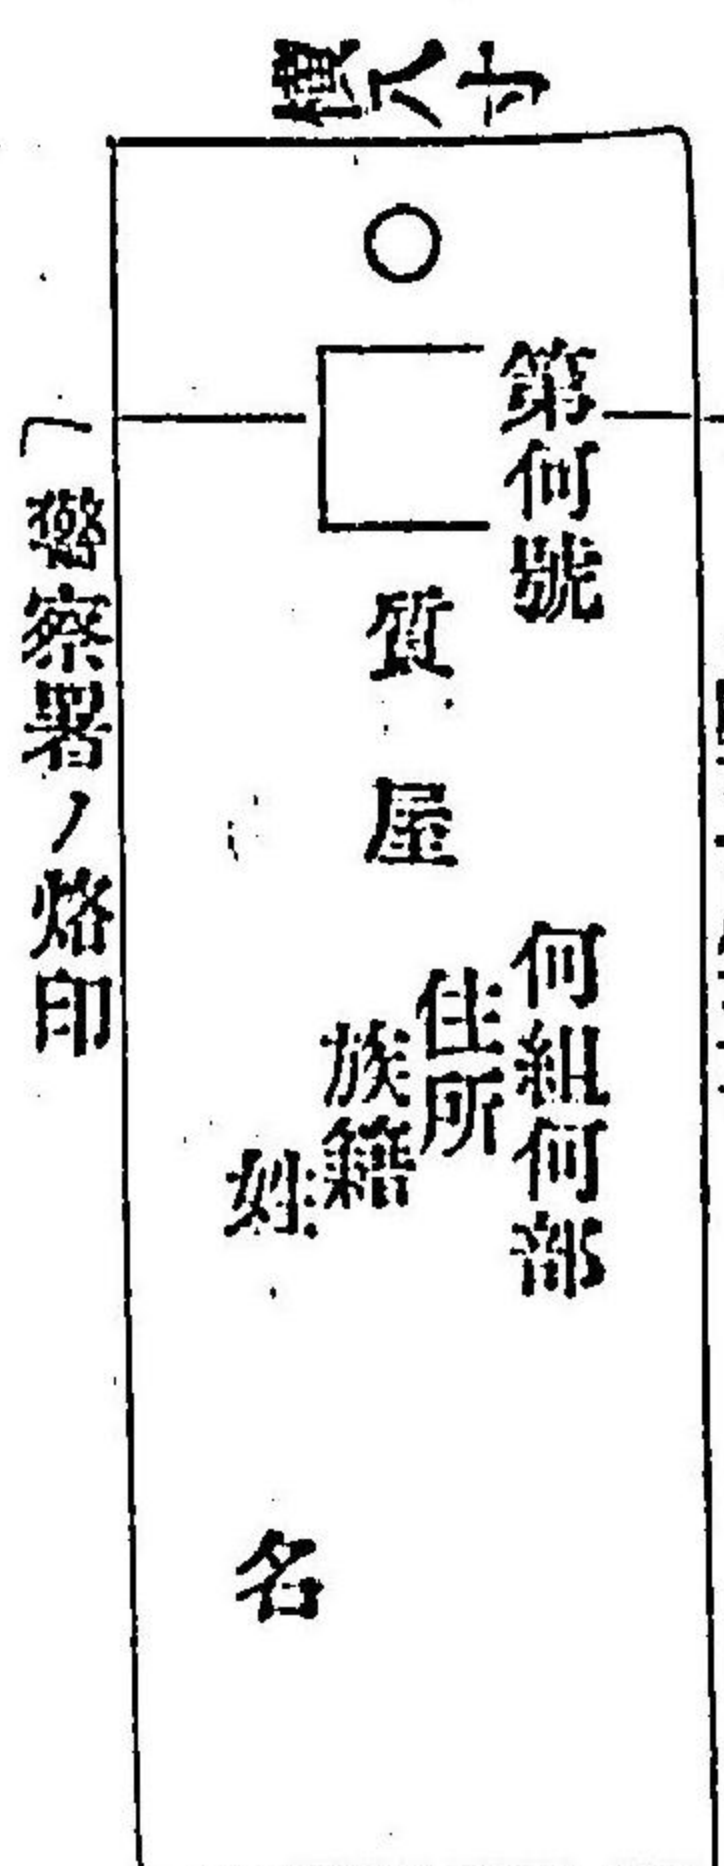 横八寸
第何號
質屋
何組何部
住所
族籍
姓名
警察署ノ烙印